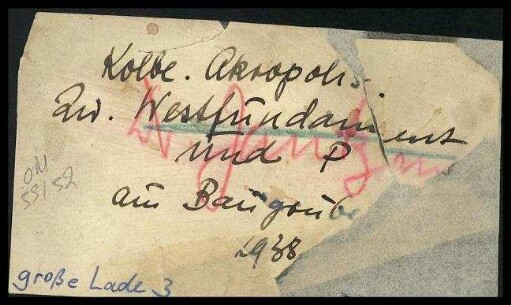 Kolbe. Akropolis
Zw. Westfundament
und P
am Baugrube
1938
ON
53/52
große Lade 3